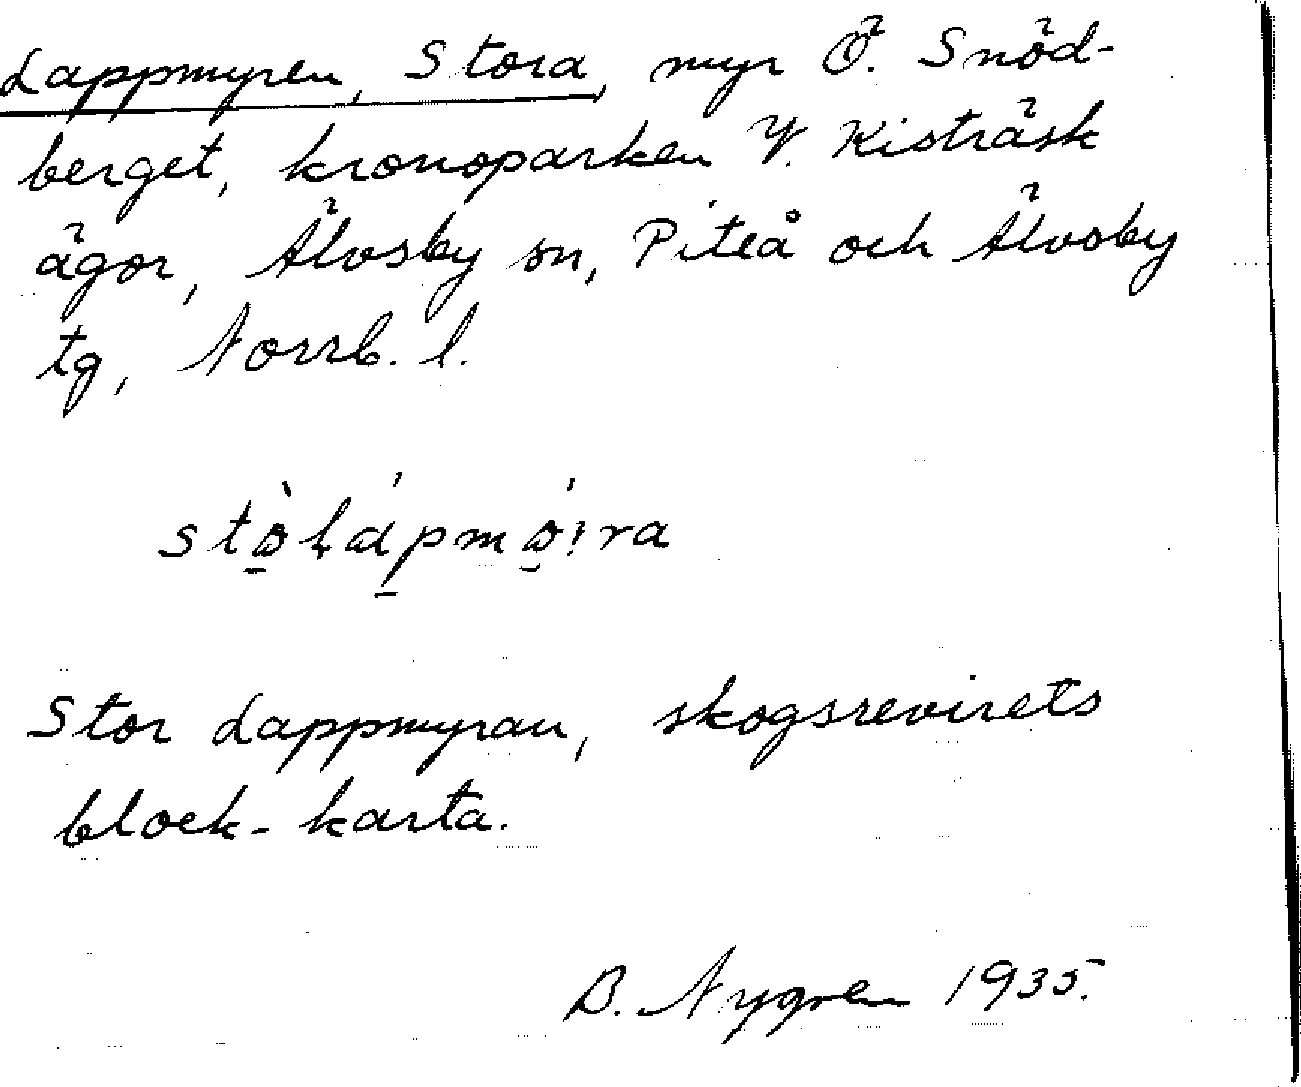 Lappmyren, Stora, myr Ö. Snöd-
berget, kronoparken V. Kisträsk
ägor, Älvsby sn, Piteå och Älvsby
tg, Norrb. l.
Stor Lappmyran, skogsrevirets
block-karta.
B. Nygren 1935.